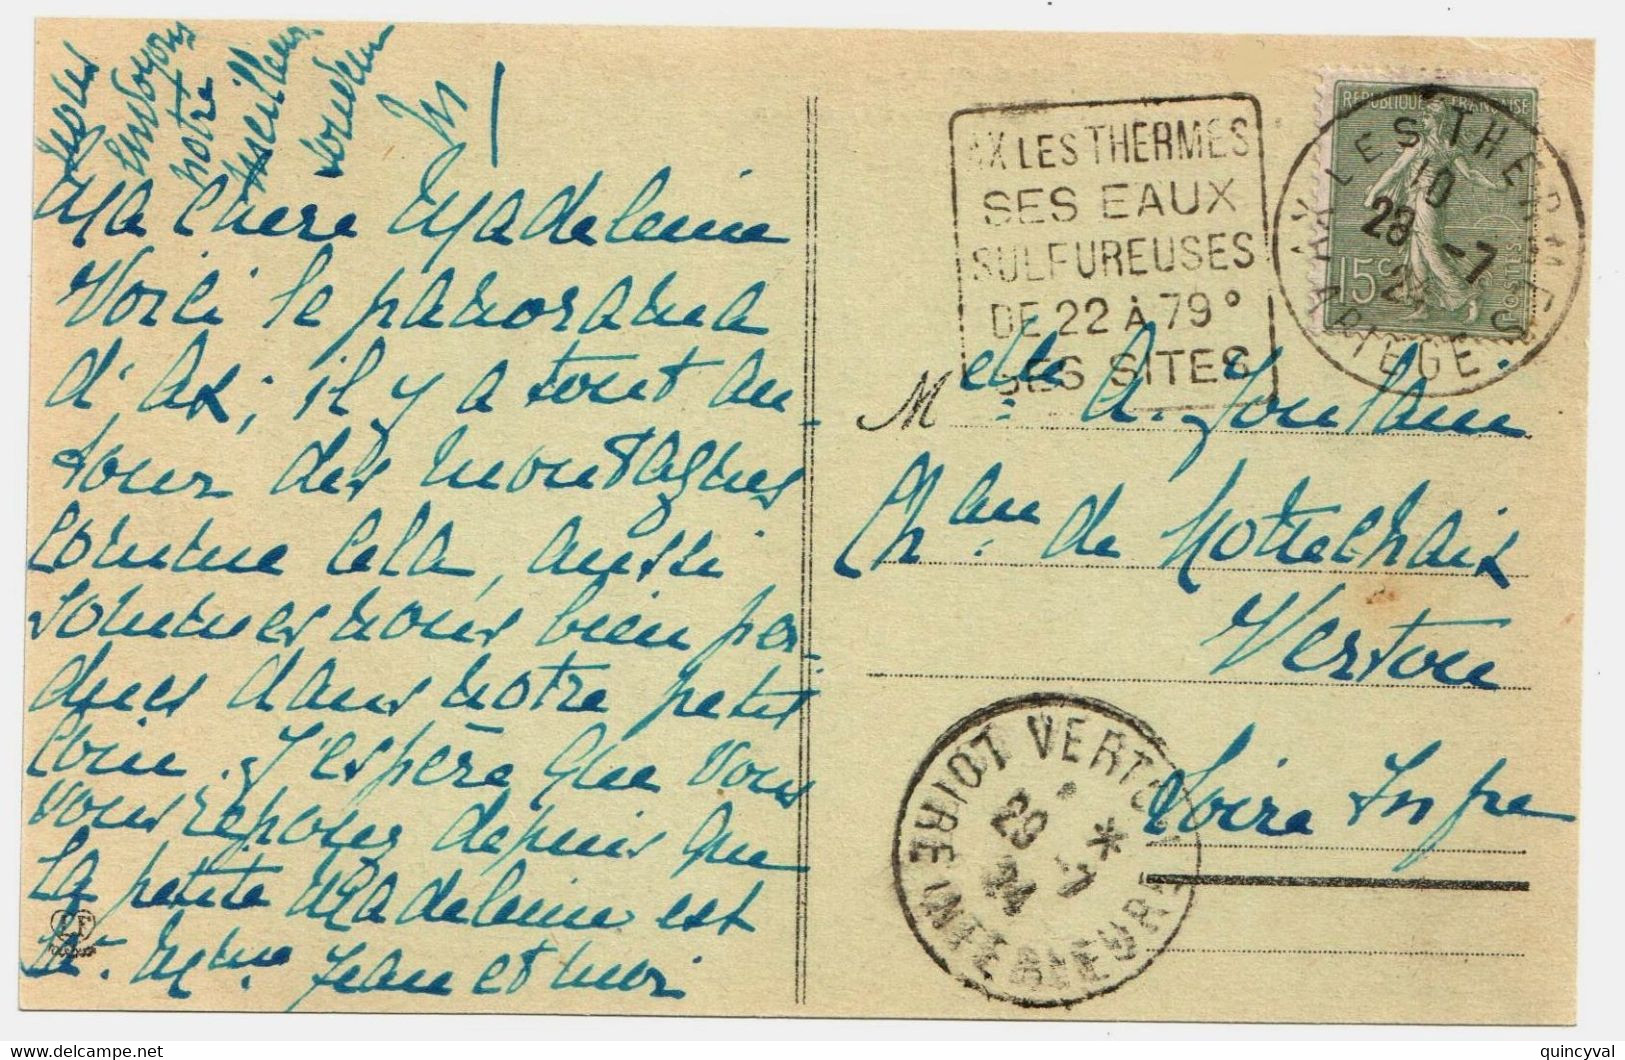 Ma chère Madeleine
Voici le panorama
d'Ax, il y a tout au-
tour des montagnes
comme cela, aussi
sommes nous bien per-
dues dans notre petit
coin. J'espère que vous
vous reposez depuis que
la petite Madeleine est
Mme Jean et moi
vous
envoyons
notre
meilleur
souvenir
AX LES THERMES
SES EAUX
SULFUREUSES
DE 22 À 79°
SES SITES
REPUBLIQUE FRANÇAISE
15c POSTES
AX LES THERMES
10
28 -7
24
ARIEGE
Melle A.
Chau de
Vertou
Loire Infre
VERTOU
29
7
24
LOIRE INFERIEURE
delcampe.net
quincyval